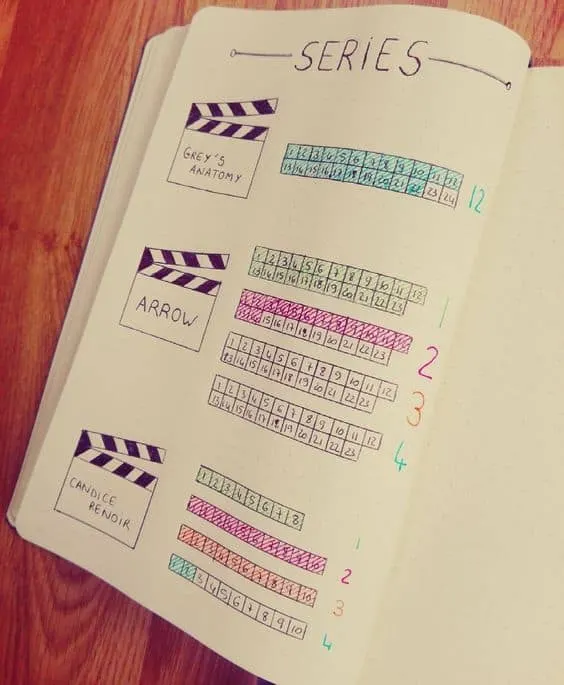 SERIES
GREY'S
ANATOMY
1 2 3 4 5 6 7 8 9 10 11 12
13 14 15 16 17 18 19 20 21 22 23 24
12
ARROW
1 2 3 4 5 6 7 8 9 10 11 12
13 14 15 16 17 18 19 20 21 22 23
1
15 16 17 18 19 20 21 22 23
2
1 2 3 4 5 6 7 8 9 10 11 12
13 14 15 16 17 18 19 20 21 22 23
3
1 2 3 4 5 6 7 8 9 10 11 12
13 14 15 16 17 18 19 20 21 22 23
4
CANDICE
RENOIR
1 2 3 4 5 6 7 8
1
2
1 2 3 4 5 6 7 8 9 10
3
1 2 3 4 5 6 7 8 9 10
4